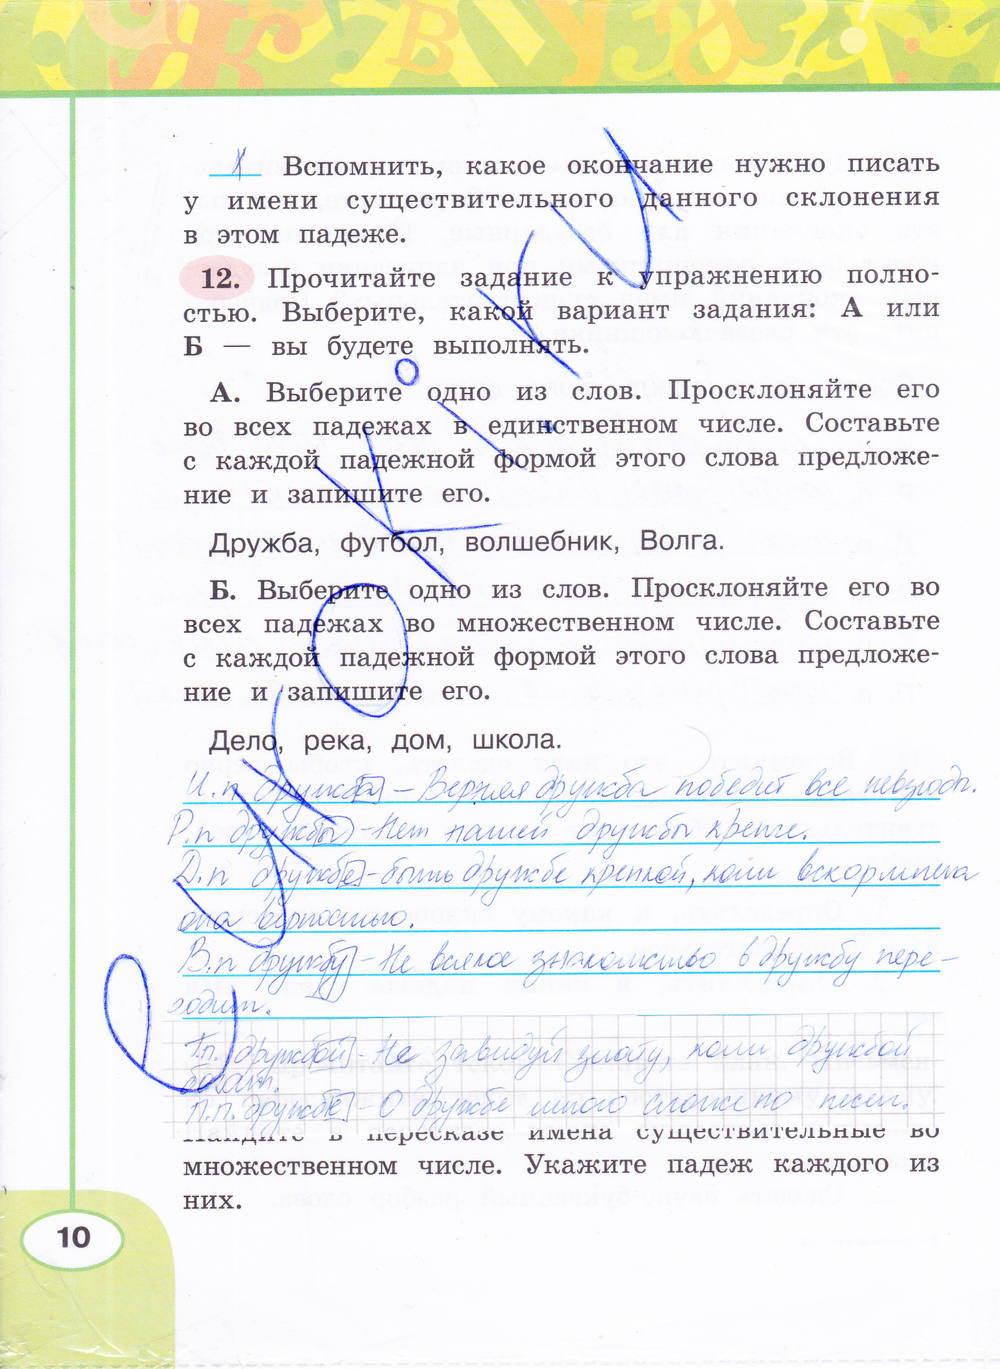 Вспомнить, какое окончание нужно писать
у имени существительного данного склонения
в этом падеже.
12. Прочитайте задание к упражнению полно-
стью. Выберите, какой вариант задания: А или
Б — вы будете выполнять.
А. Выберите одно из слов. Просклоняйте его
во всех падежах в единственном числе. Составьте
с каждой падежной формой этого слова предложе-
ние и запишите его.
Дружба, футбол, волшебник, Волга.
Б. Выберите одно из слов. Просклоняйте его во
всех падежах во множественном числе. Составьте
с каждой падежной формой этого слова предложе-
ние и запишите его.
Дело, река, дом, школа.
И.п дружба – Верная дружба победит все невзгоды.
Р.п дружбы – Нет нашей дружбы крепче.
Д.п дружбе – быть дружбе крепкой, коли вскормлена
она верностью.
В.п дружбу – Не всякое знакомство в дружбу пере-
ходит.
Тп. дружбой – Не завидуй злату, коли дружбой
богат.
П.п. дружбе – О дружбе много сложено песен.
Найдите в пересказе имена существительные во
множественном числе. Укажите падеж каждого из
них.
10